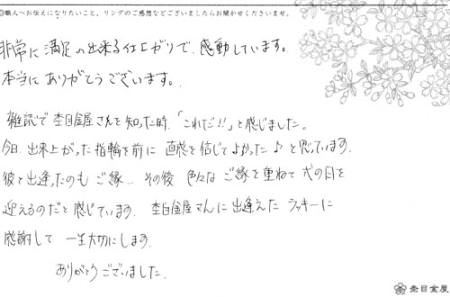 ◎職人へお伝えになりたいこと、リングのご感想などございましたらお聞かせくださいませ。
非常に満足の出来る仕上がりで、感動しています。
本当にありがとうございます。
雑誌で杢目金屋さんを知った時、「これだ!!」と感じました。
今日、出来上がった指輪を前に 直感を信じてよかった♪と思っています。
彼と出逢ったのも ご縁… その後 色々な ご縁を重ねて 式の日を
迎えるのだと感じています。杢目金屋さんに出逢えた ラッキーに
感謝して 一生大切にします。
ありがとうございました。
杢目金屋